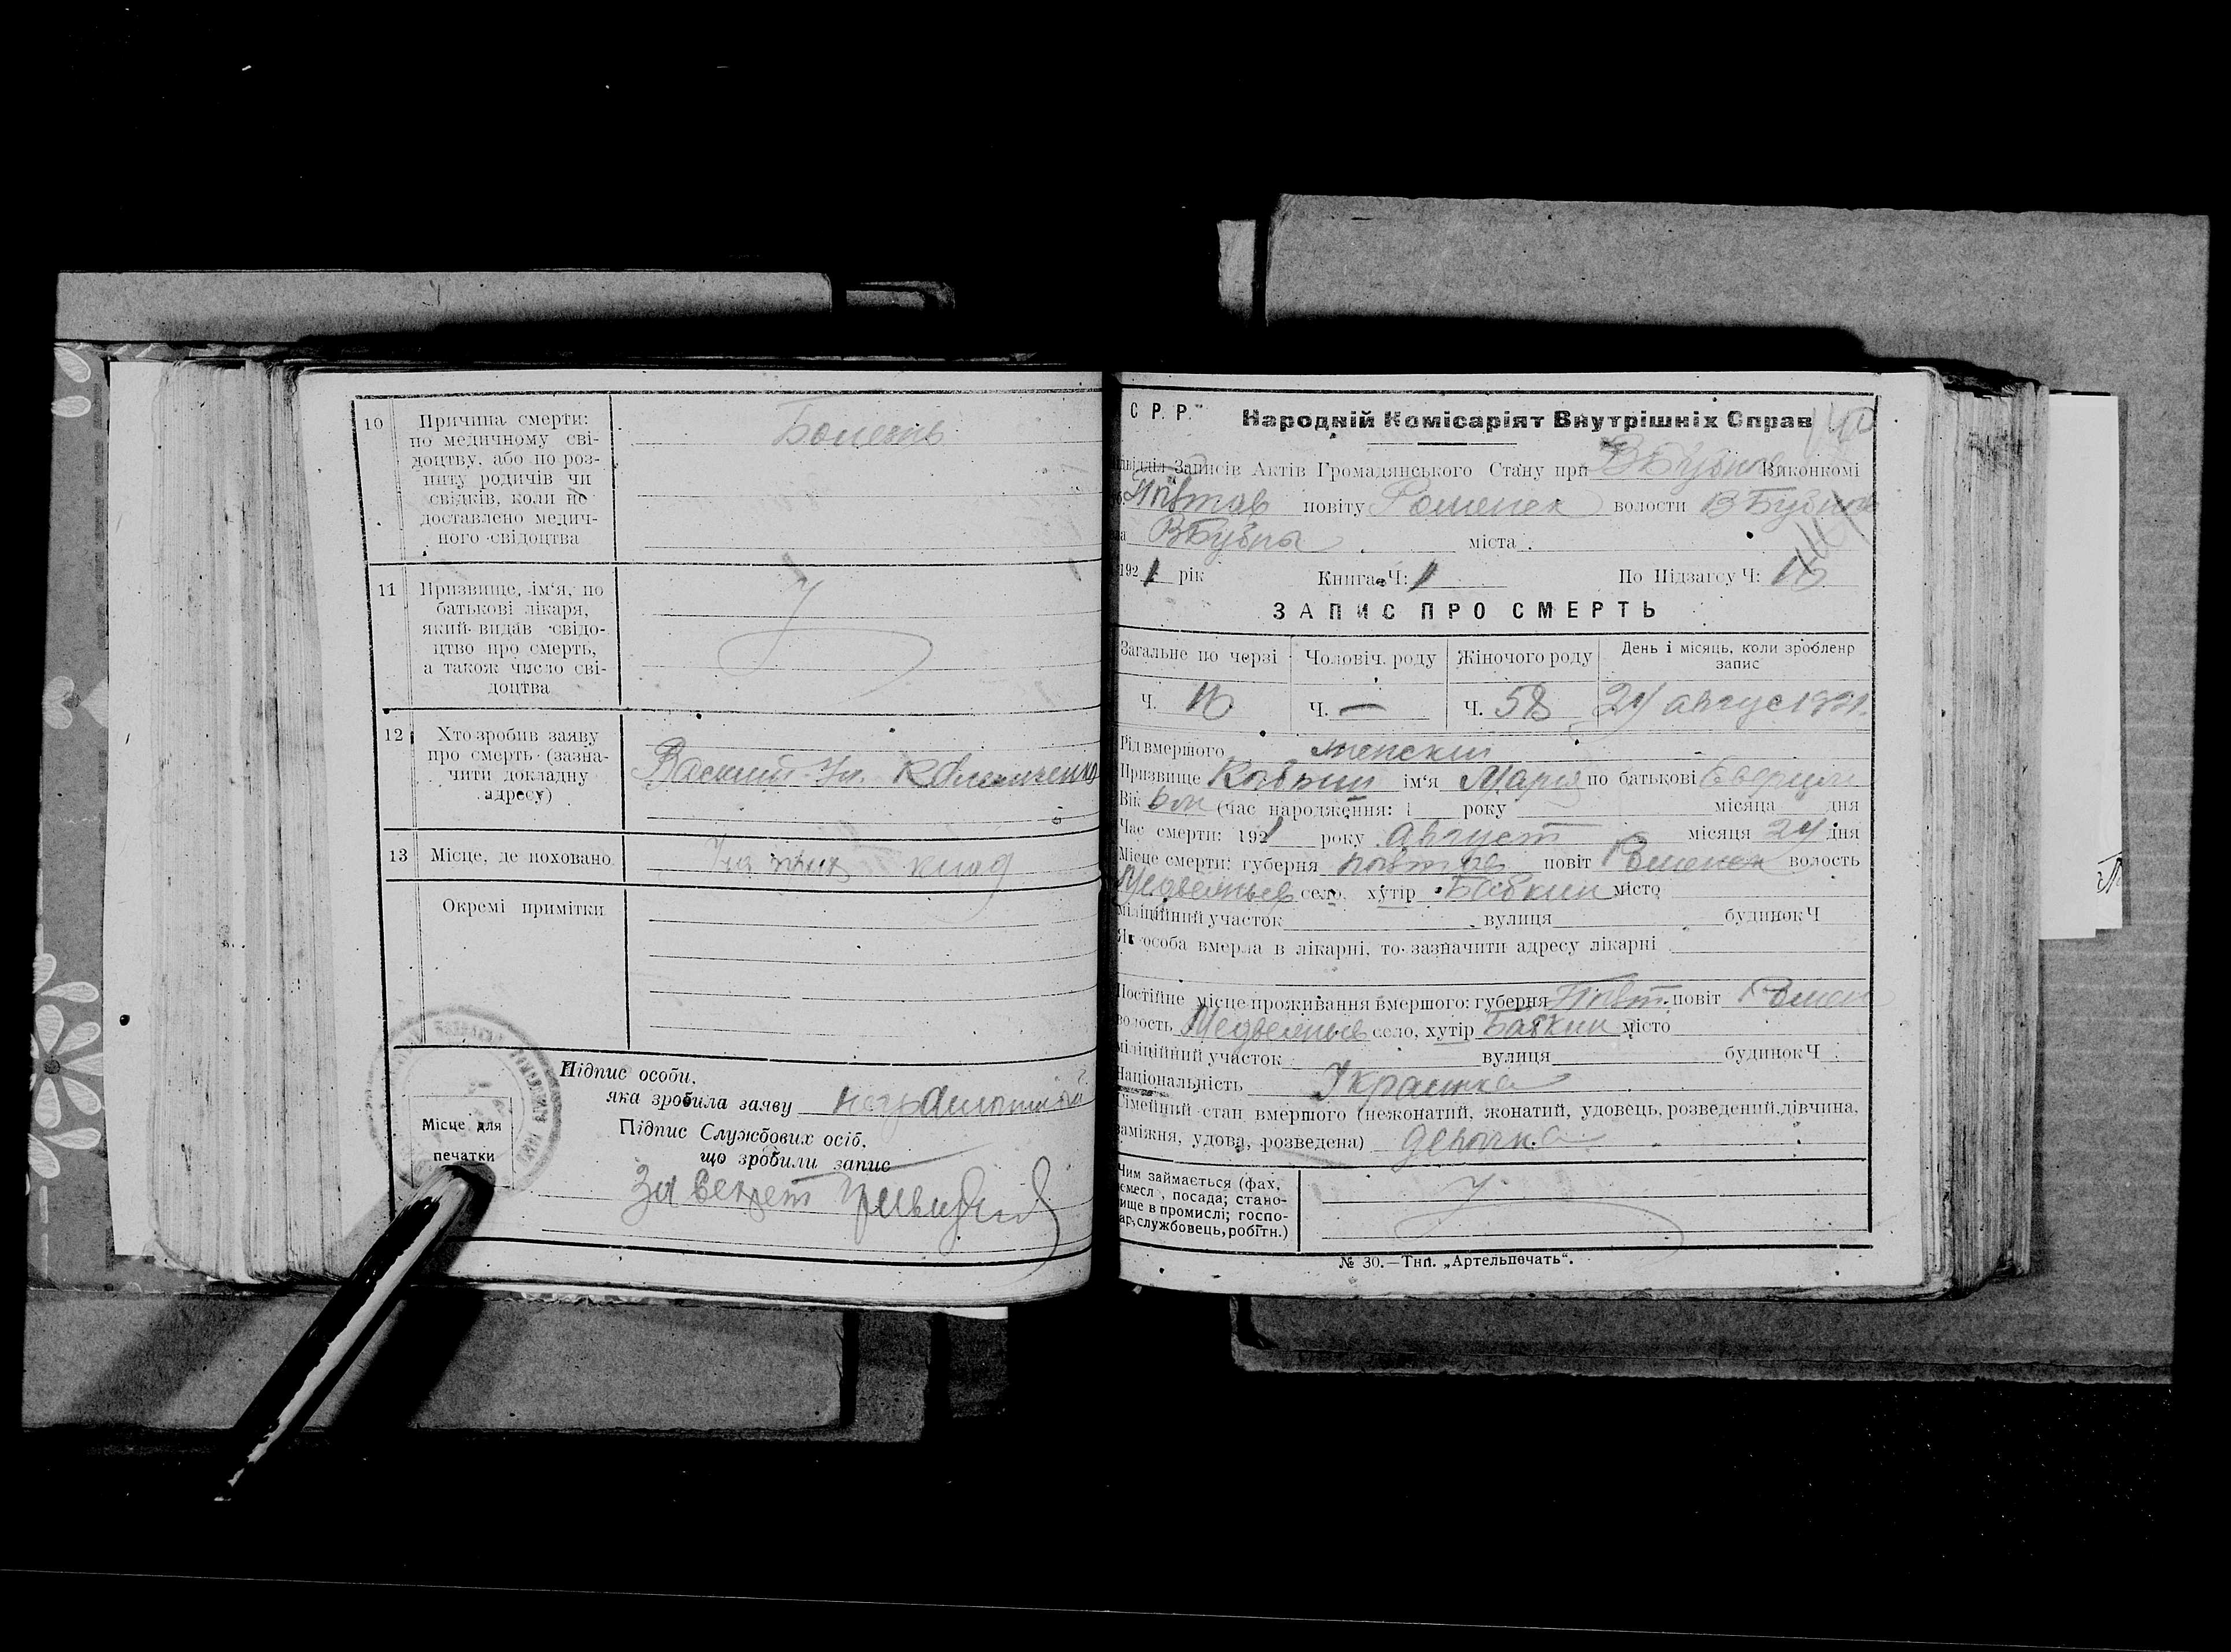 10 Причина смерти:
по медичному сві-
доцтву, або по роз-
питу родичів чи
свідків, коли не
доставлено медич-
ного свідоцтва
Болезнь
11 Призвище, ім'я, по
батькові лікаря,
який видав свідо-
цтво про смерть,
а також число сві-
доцтва
12 Хто зробив заяву
про смерть (зазна-
чити докладну
адресу)
13 Місце, де поховано
Окремі примітки
Місце для
печатки
Підпис особи,
яка зробила заяву
Підпис Службових осіб,
що зробили запис
За секрет
С Р. Р."
Народній Комісаріят Внутрішніх Справ
Записів Актів Громадянського Стану при В Бубни Виконкомі
Повтав повіту Роменск волости В Бубни
В Бубны міста
1921 рік Книга Ч: 1 По Підзагсу Ч:
ЗАПИС ПРО СМЕРТЬ
Загальне по черзі Чоловіч. роду Жіночого роду День і місяць, коли зроблено запис
Ч. Ч. — Ч. 58 24 август 1921
Рід вмершого женский
Призвище ім'я Мария по батькові
Вік (час народження: 1 року місяця дня
Час смерти: 1921 року август місяця 24 дня
Місце смерти: губерня повіт Роменск волость
село, хутір Бабкин місто
міліційний участок вулиця будинок Ч
особа вмерла в лікарні, то зазначити адресу лікарні
Постійне місце проживання вмершого: губерня Повт повіт Ромен
волость село, хутір Бабкин місто
міліційний участок вулиця будинок Ч
Національність Украинка
Сімейний стан вмершого (нежонатий, жонатий, удовець, розведений, дівчина,
заміжня, удова, розведена) девочка
Чим займається (фах,
ремесл, посада; стано-
вище в промислі; госпо-
дар, службовець, робітн.)
№ 30.—Тип. „Артельпечать".